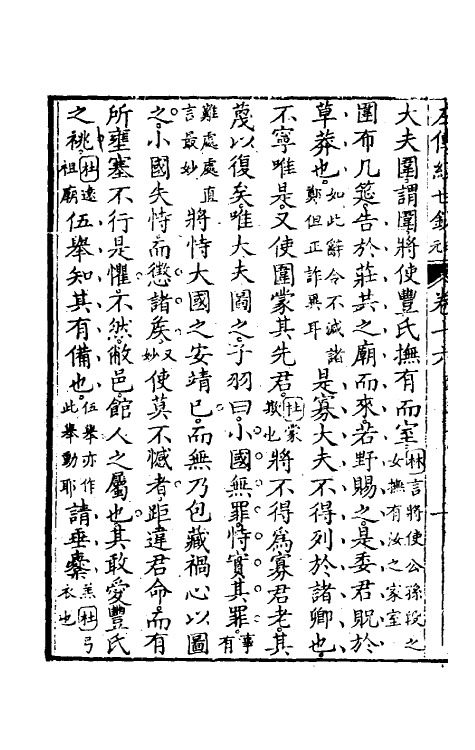 左傳經世鈔 卷十六 一
大夫圍謂圍將使豐氏撫有而室林言將使公孫段之女撫有汝之家室
圍布几筵告於莊共之廟而來若野賜之是委君貺於
草莽也如此辭令不減諸鄭但正詐異耳是寡大夫不得列於諸卿也
不寧唯是又使圍蒙其先君杜蒙欺也將不得為寡君老其
蔑以復矣唯大夫圖之子羽曰小國無罪恃實其罪事有
難處處直言最妙將恃大國之安靖已而無乃包藏禍心以圖
之小國失恃而懲諸矦又妙使莫不憾者距違君命而有
所壅塞不行是懼不然敝邑館人之屬也其敢愛豐氏
之祧杜遠祖廟伍舉知其有備也伍舉亦作此舉動耶請垂櫜羔杜弓衣也